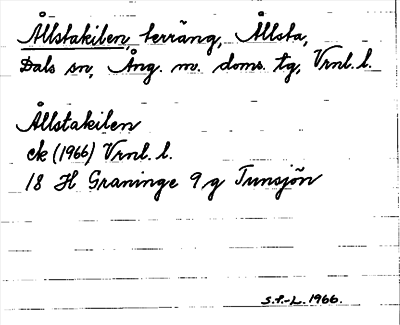 Ållstakilen, terräng, Ållsta,
Dals sn, Ång. m. doms. tg, Vrnl. l.
Ållstakilen
ek (1966) Vrnl. l.
18 H Graninge 9 g Tunsjön
S.P.-L. 1966.